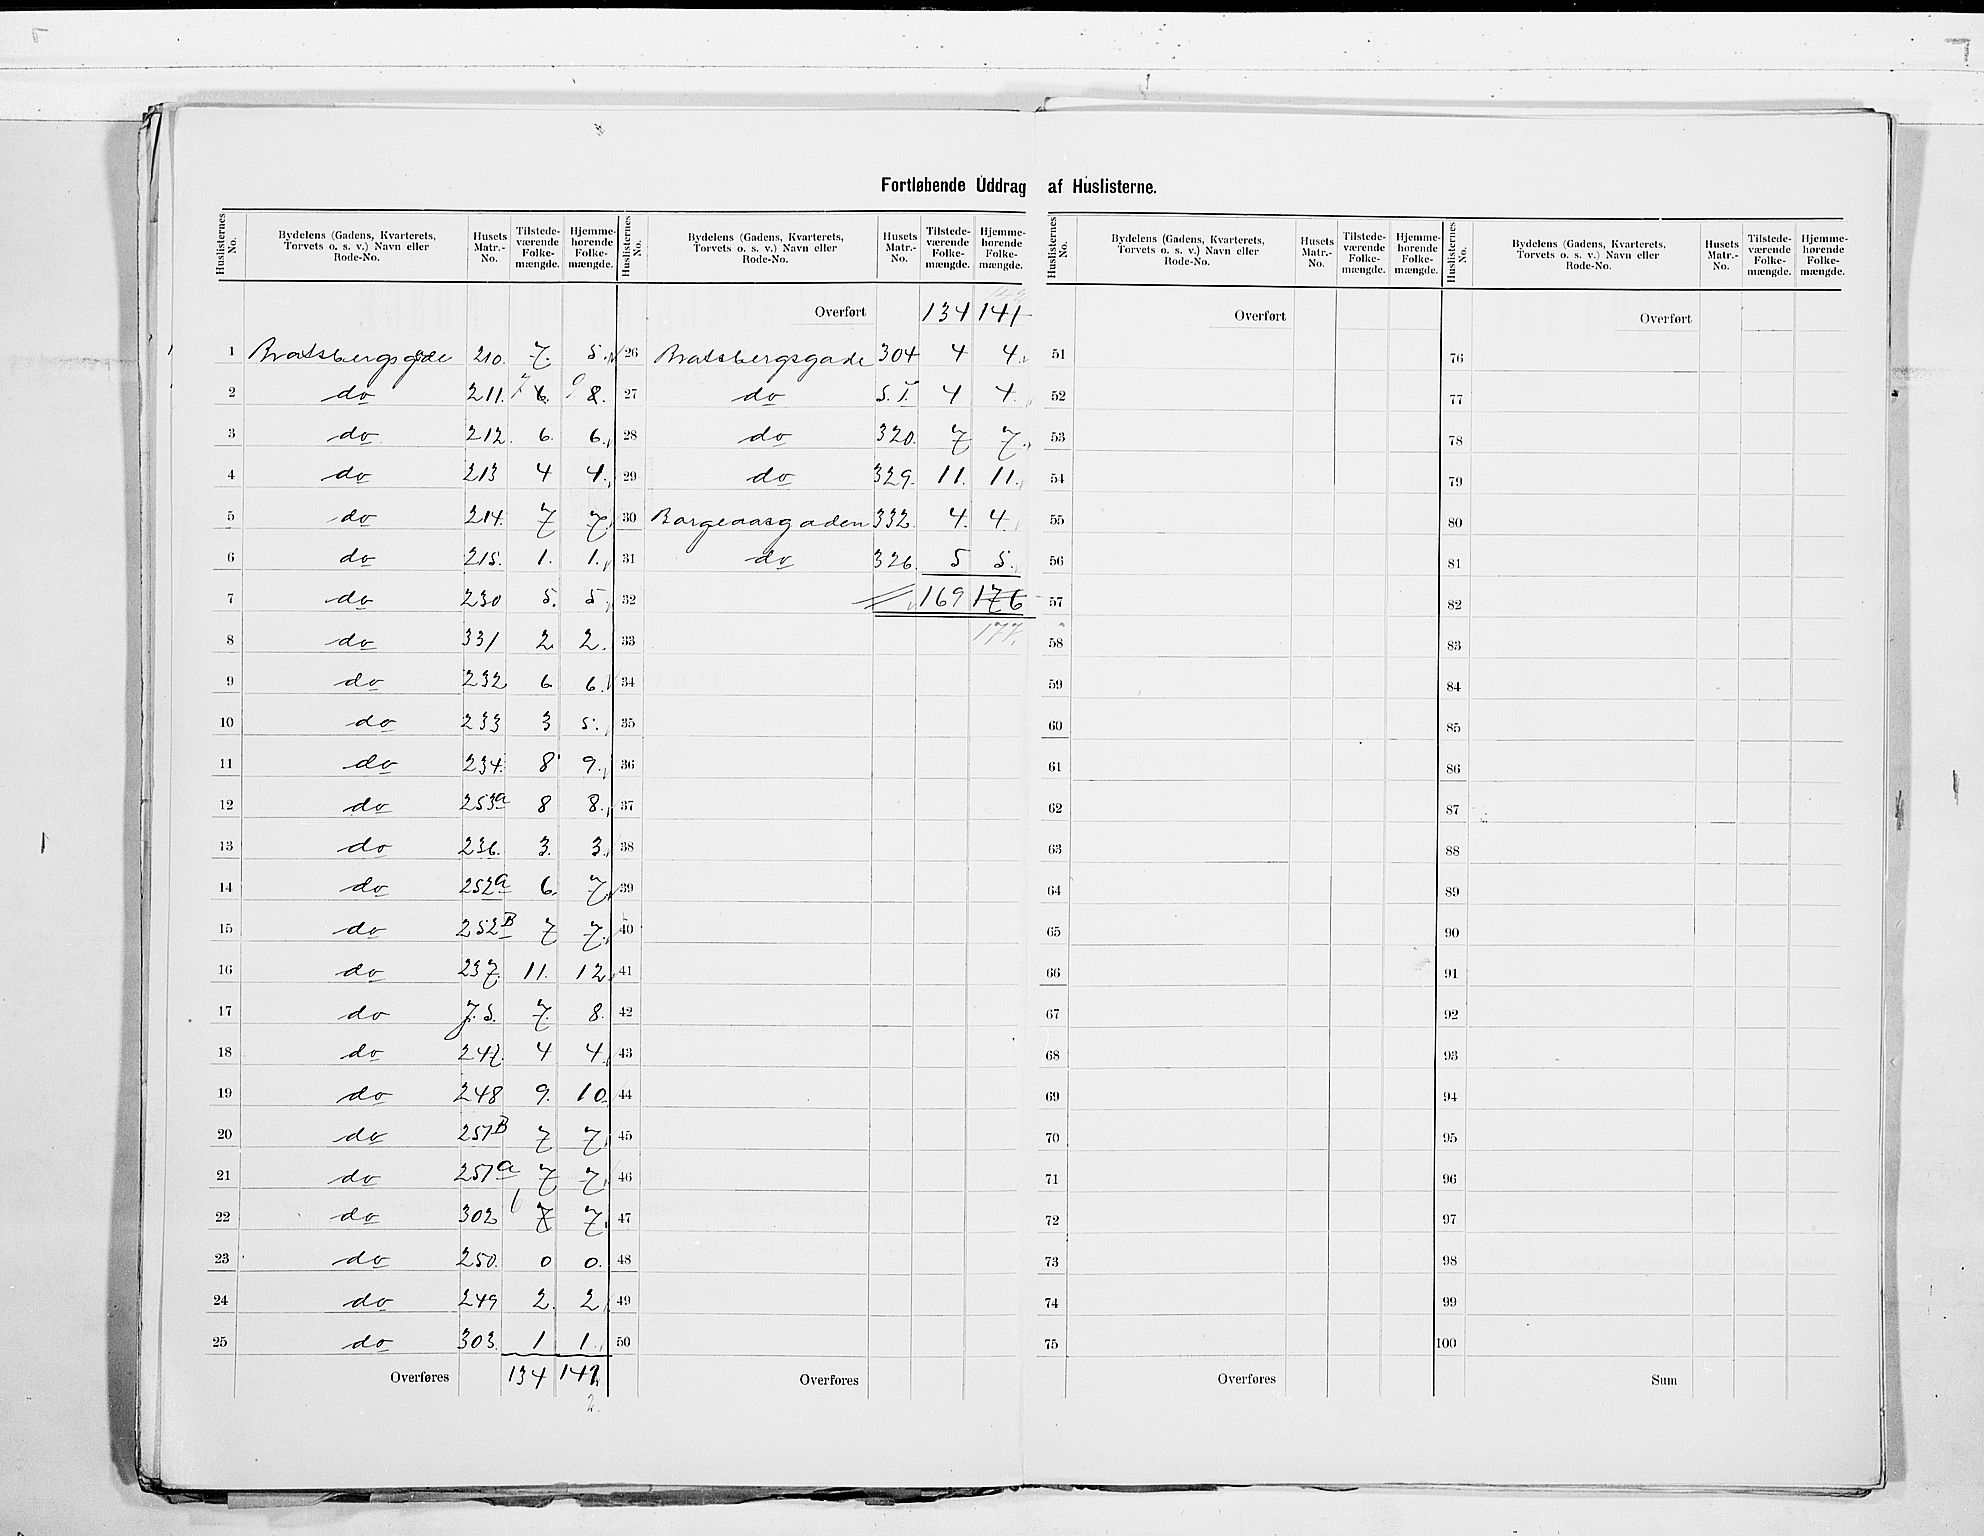 Fortløbende Uddrag af Huslisterne.
Huslisternes No. Bydelens (Gadens, Kvarterets, Torvets o. s. v.) Navn eller Rode-No. Husets Matr.-No. Tilstedeværende Folkemængde. Hjemmehørende Folkemængde.
1 Bratsbergsgade 210. 7. 5.
2 do 211. 7 6. 9 8.
3 do 212. 6. 6.
4 do 213 4 4.
5 do 214. 7 7
6 do 215. 1. 1.
7 do 230 5. 5
8 do 331 2 2.
9 do 232 6 6.
10 do 233 3 5.
11 do 234. 8 9.
12 do 253a 8 8.
13 do 236. 3. 3.
14 do 252a 6 7
15 do 252B 7 7.
16 do 237. 11. 12
17 do J.S. 7. 8.
18 do 247. 4 4
19 do 248 9. 10
20 do 251B 7 7
21 do 251a 7 7
22 do 302 6 7 7.
23 do 250. 0 0.
24 do 249 2. 2
25 do 303. 1 1.
Overføres 134 141
2.
Huslisternes No. Bydelens (Gadens, Kvarterets, Torvets o. s. v.) Navn eller Rode-No. Husets Matr.-No. Tilstedeværende Folkemængde. Hjemmehørende Folkemængde.
142
Overført 134 141
26 Bratsbergsgade 304 4 4.
27 do S.T. 4 4.
28 do 320. 7 7.
29 do 329. 11. 11.
30 Borgeaasgaden 332. 4. 4.
31 do 326. 5 5.
32 169 176
33 177.
34
35
36
37
38
39
40
41
42
43
44
45
46
47
48
49
50
Overføres
Huslisternes No. Bydelens (Gadens, Kvarterets, Torvets o. s. v.) Navn eller Rode-No. Husets Matr.-No. Tilstedeværende Folkemængde. Hjemmehørende Folkemængde.
Overført
51
52
53
54
55
56
57
58
59
60
61
62
63
64
65
66
67
68
69
70
71
72
73
74
75
Overføres
Huslisternes No. Bydelens (Gadens, Kvarterets, Torvets o. s. v.) Navn eller Rode-No. Husets Matr.-No. Tilstedeværende Folkemængde. Hjemmehørende Folkemængde.
Overført
76
77
78
79
80
81
82
83
84
85
86
87
88
89
90
91
92
93
94
95
96
97
98
99
100
Sum